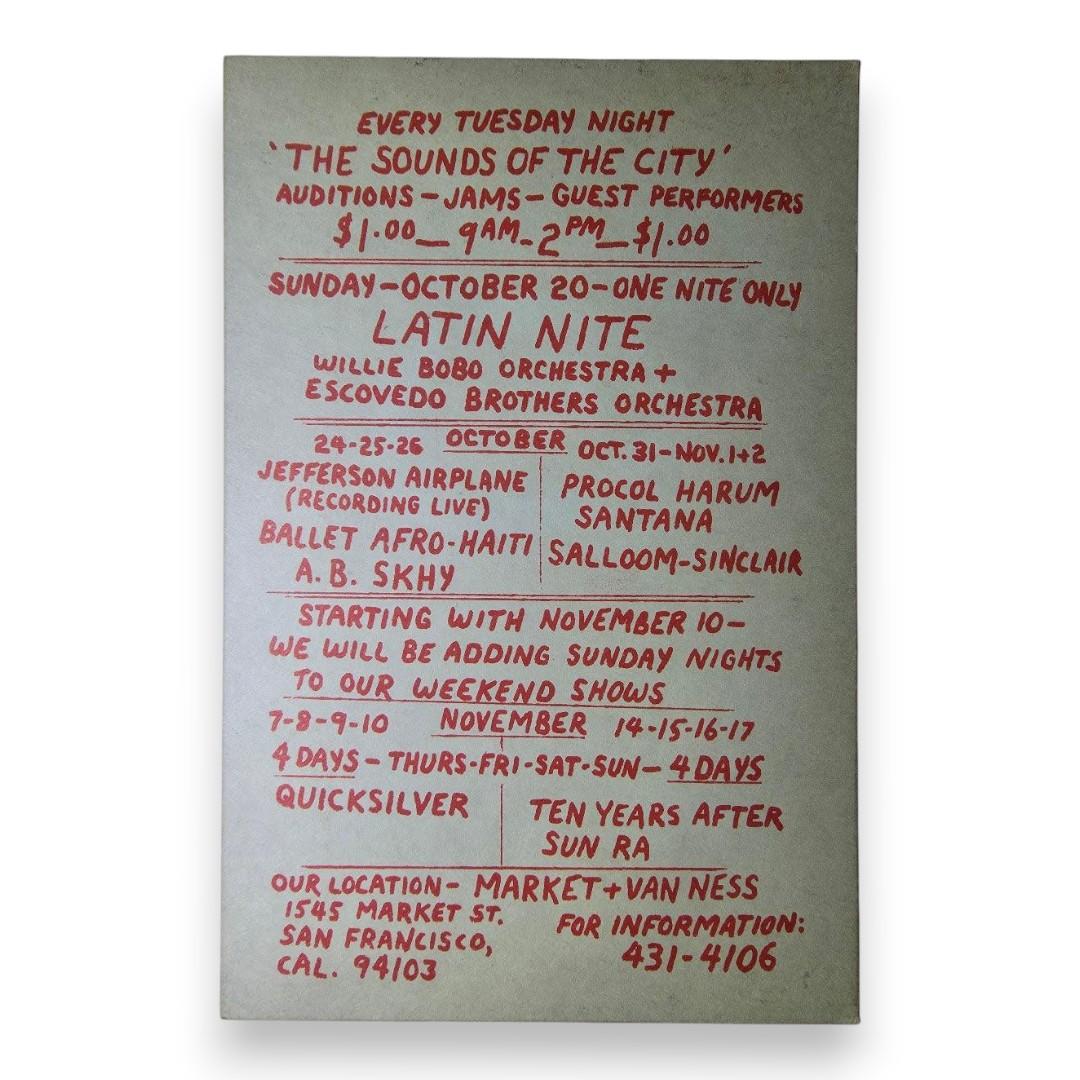 EVERY TUESDAY NIGHT
'THE SOUNDS OF THE CITY'
AUDITIONS - JAMS - GUEST PERFORMERS
$1.00 — 9AM - 2PM — $1.00
SUNDAY - OCTOBER 20 - ONE NITE ONLY
LATIN NITE
WILLIE BOBO ORCHESTRA +
ESCOVEDO BROTHERS ORCHESTRA
OCTOBER
24-25-26
JEFFERSON AIRPLANE
(RECORDING LIVE)
BALLET AFRO-HAITI
A.B. SKHY
OCT. 31 - NOV. 1+2
PROCOL HARUM
SANTANA
SALLOOM-SINCLAIR
STARTING WITH NOVEMBER 10 -
WE WILL BE ADDING SUNDAY NIGHTS
TO OUR WEEKEND SHOWS
7-8-9-10 NOVEMBER 14-15-16-17
4 DAYS - THURS-FRI-SAT-SUN - 4 DAYS
QUICKSILVER
TEN YEARS AFTER
SUN RA
OUR LOCATION - MARKET + VAN NESS
1545 MARKET ST.
SAN FRANCISCO,
CAL. 94103
FOR INFORMATION:
431-4106